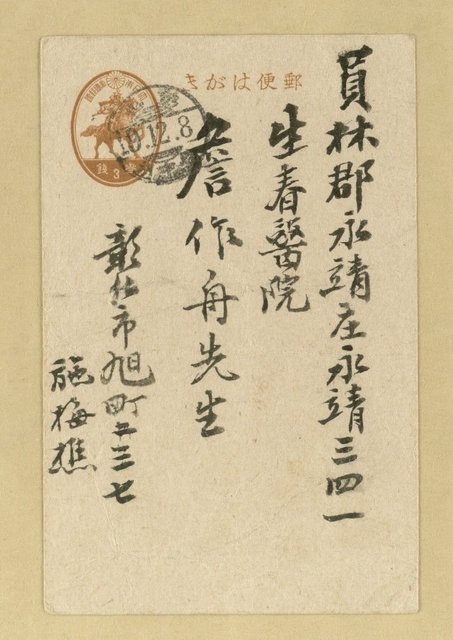 郵便はがき
19.12.8
錢3
員林郡永靖庄永靖三四一
生春醫院
詹作舟先生
彰化市旭町二三七
施梅樵